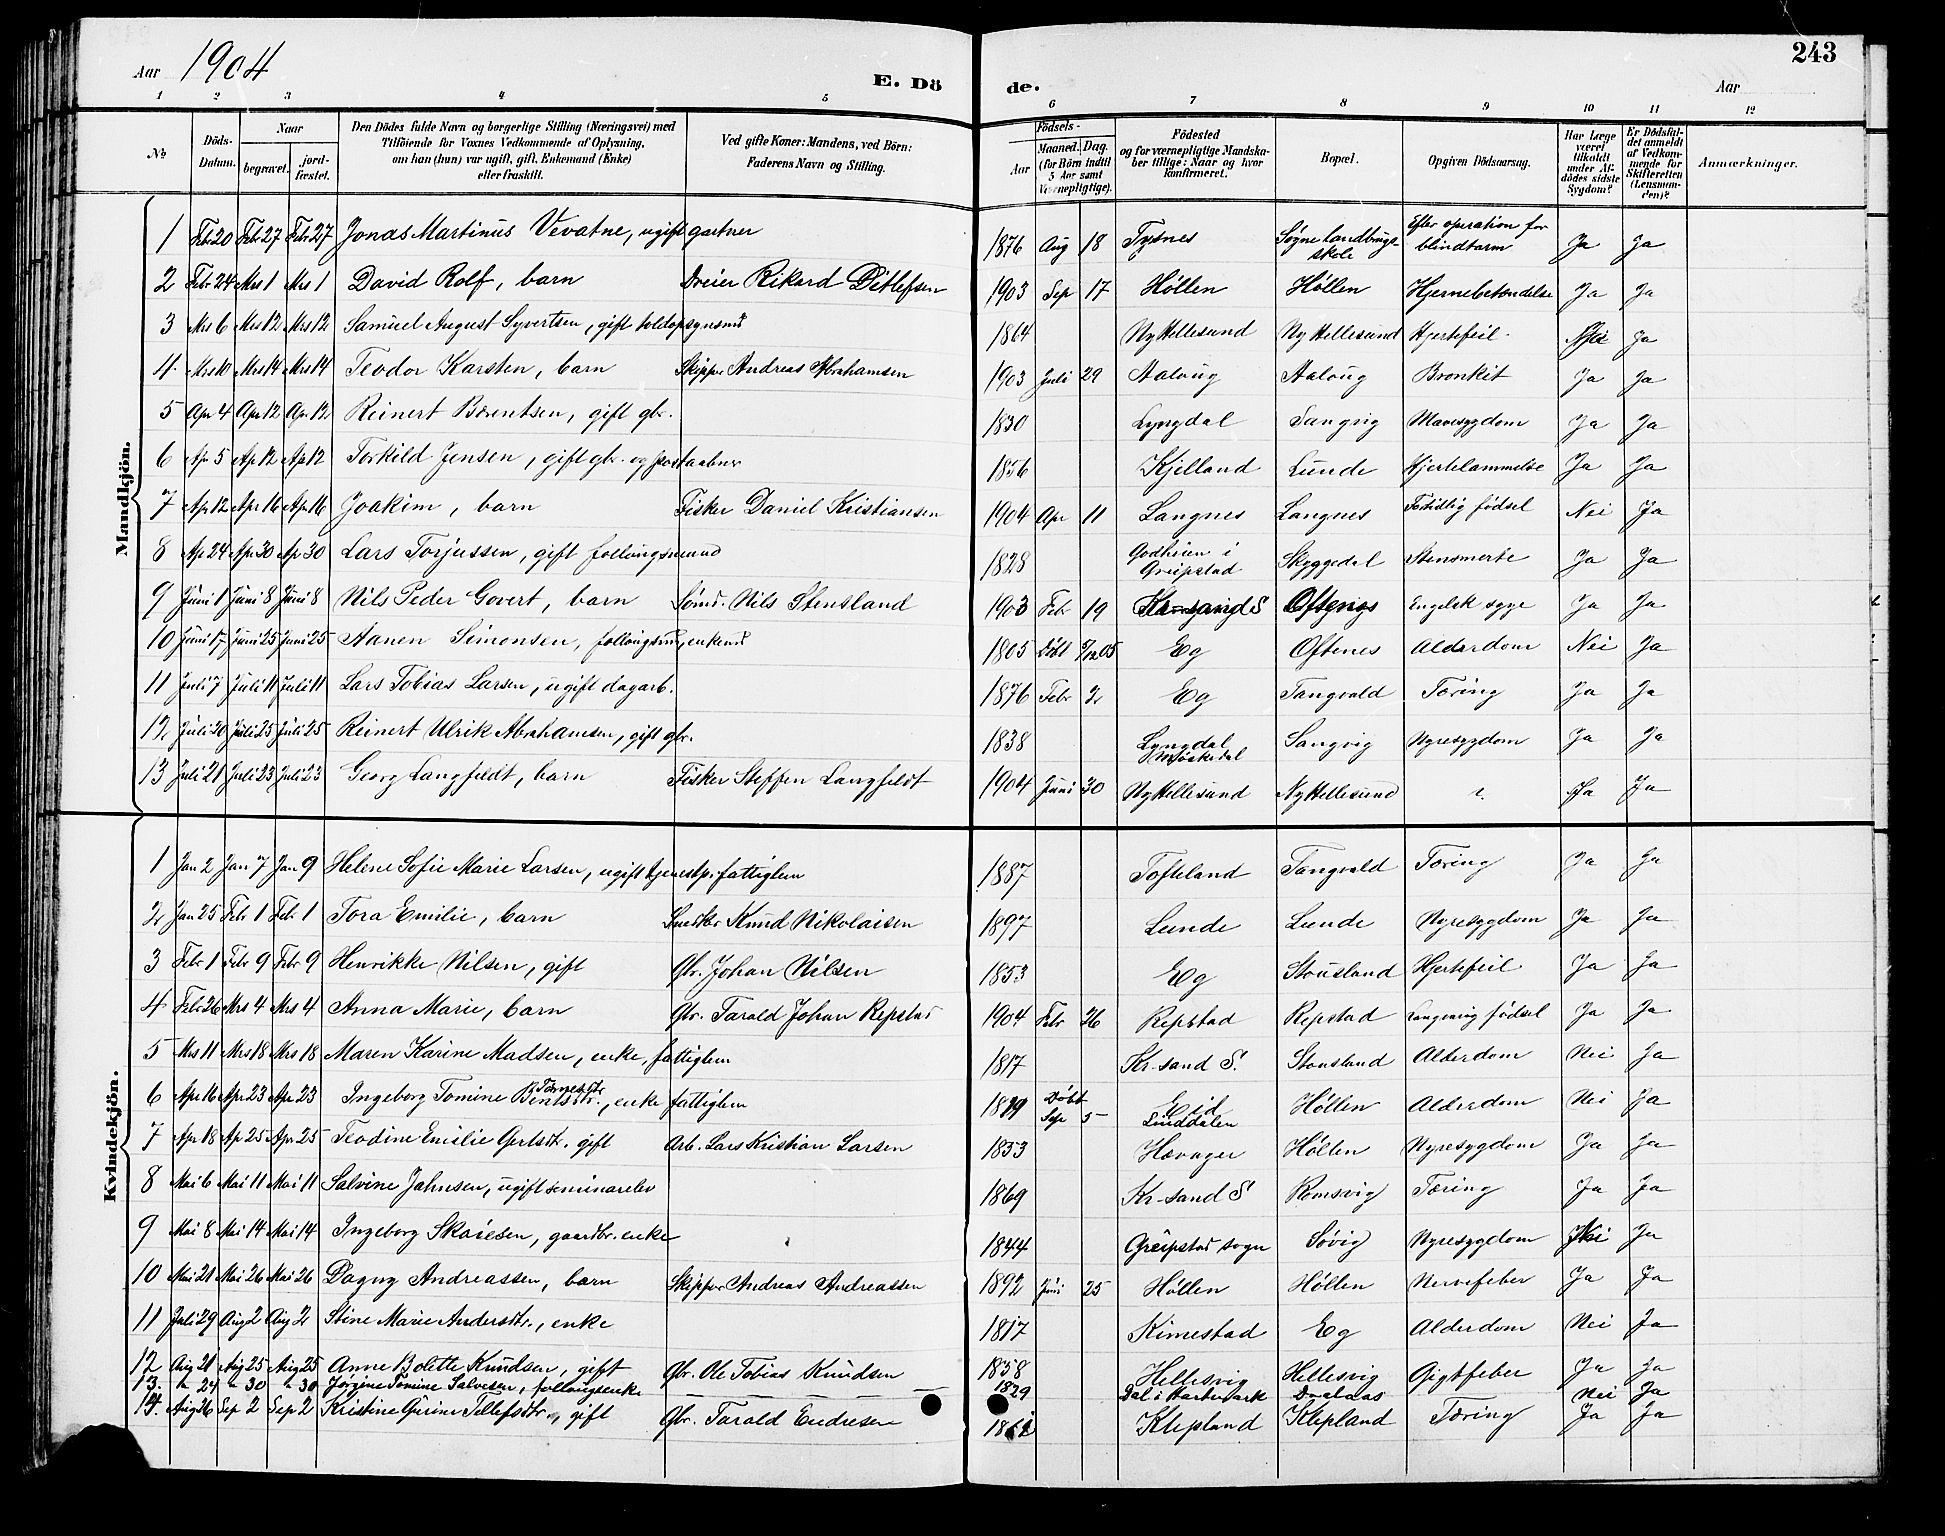 Aar 1904 E. Dö de. Aar 243
1 2 3 4 5 6 7 8 9 10 11 12
No Döds-Datum. Naar begravet. jord-fæstet. Den Dödes fulde Navn og borgerlige Stilling (Næringsvei) med Tilföiende for Voxnes Vedkommende af Oplysning, om han (hun) var ugift, gift, Enkemand (Enke) eller fraskilt. Ved gifte Koner: Mandens, ved Börn: Faderens Navn og Stilling. Födsels- Aar Maaned. Dag. (for Börn indtil 5 Aar samt Værnepligtige). Födested og for værnepligtige Mandskaber tillige: Naar og hvor konfirmeret. Bopæl. Opgiven Dödsaarsag. Har Læge været tilkaldt under Afdödes sidste Sygdom? Er Dödsfaldet anmeldt af Vedkommende for Skifteretten (Lensmanden)? Anmærkninger.
Mandkjön.
1 Febr 20 Febr 27 Febr 27 Jonas Martinus Vevatne, ugift gartner 1876 Aug 18 Tysnes Søgne landbrugsskole Efter operation for blindtarm Ja Ja
2 Febr 24 Mrs 1 Mrs 1 David Rolf, barn Dreier Rikard Ditlefsen 1903 Sep 17 Høllen Høllen Hjernebetændelse Ja Ja
3 Mrs 6 Mrs 12 Mrs 12 Samuel August Syvertsen, gift toldopsynsmd 1864 Ny Hellesund Ny Hellesund Hjertefeil Nei Ja
4. Mrs 10 Mrs 14 Mrs 14 Teodor Karsten, barn Skipper Andreas Abrahamsen 1903 Juli 29 Aaloug Aaloug Bronkit Ja Ja
5 Apr 4 Apr 12 Apr 12 Reinert Berentsen, gift gbr. 1830 Lyngdal Sangvig Mavesygdom Ja Ja
6 Apr 5 Ap 12 Ap 12 Torkild Jensen, gift gbr. og postaabner 1856 Kjelland Lunde Hjertelammelse Ja Ja
7 Apr 12 Apr 16 Apr 16 Joakim, barn Fisker Daniel Kristiansen 1904 Apr 11 Langnes Langnes Fortidlig fødsel Nei Ja
8 Ap 24 Apr 30 Ap 30 Lars Torjussen, gift follaugsmand 1828 Godheien i Greipstad Skyggedal Stensmerte Ja Ja
9 Juni 1 Juni 8 Juni 8 Nils Peder Govert, barn Sømd. Nils Stensland 1903 Febr 19 Kr.sand S Oftenes Engelsk syge Ja Ja
10 Juni 17 Juni 25 Juni 25 Aanen Simonsen, follaugsmd, enkemd 1805 Døbt 8/12 05 Eg Oftenes Alderdom Nei Ja
11 Juli 7 Juli 11 Juli 11 Lars Tobias Larsen, ugift dagarb. 1876 Febr 2 Eg Tangvald Tæring Ja Ja
12 Juli 20 Juli 25 Juli 25 Reinert Ulrik Abrahamsen, gift gbr. 1838 Lyngdal Sangvig Nyresygdom Ja Ja
13 Juli 21 Juli 23 Juli 23 Georg Langfeldt, barn Fisker Steffen Langfeldt 1904 Juni 30 Ny Hellesund Ny Hellesund Ja Ja
Kvindekjön.
1 Jan 2 Jan 7 Jan 9 Helene Sofie Marie Larsen, ugift tjenestp. fattiglem 1887 Tofteland Tangvald Tæring Ja Ja
2 Jan 25 Febr 1 Febr 1 Tora Emilie, barn Snedker Knud Nikolaisen 1897 Lunde Lunde Nyresygdom Ja Ja
3 Febr 1 Febr 9 Febr 9 Henrikke Nilsen, gift Gbr. Johan Nilsen 1853 Eg Stousland Hjertefeil Ja Ja
4 Feb 26 Mrs 4 Mrs 4 Anna Marie, barn Gbr. Tarald Johan Repstad 1904 Febr 26 Repstad Repstad Langvarig fødsel Ja Ja
5 Mrs 11 Mrs 18 Mrs 18 Maren Karine Madsen, enke, fattiglem 1817 Kr.sand S. Stousland Alderdom Nei Ja
6 Apr 16 Apr 23 Apr 23 Ingeborg Tomine Berntsdtr., enke fattiglem 1819 Døbt Sep 5 Eid Linddalen Høllen Alderdom Nei Ja
7 Apr 18 Ap 25 Apr 25 Teodine Emilie Gertsdtr. gift Arb. Lars Kristian Larsen 1853 Havager Høllen Nyresygdom Ja Ja
8 Mai 6 Mai 11 Mai 11 Salvine Jahnsen, ugift seminarelev 1869 Kr.sand S Romsvig Tæring Ja Ja
9 Mai 8 Mai 14 Mai 14 Ingeborg Skaiesen, gaardbr. enke 1844 Greipstad sogn Søvig Nyresygdom Nei Ja
10 Mai 21 Mai 26 Mai 26 Dagny Andreassen, barn Skipper Andreas Andreassen 1892 Juni 25 Høllen Høllen Nervefeber Ja Ja
11 Juli 29 Aug 2 Aug 2 Stine Marie Andersdtr., enke 1817 Kimestad Eg Alderdom Nei Ja
12 Aug 21 Aug 25 Aug 25 Anne Bolette Knudsen, gift Gbr. Ole Tobias Knudsen 1858 Hellesvig Hellesvig Gigtfeber Ja Ja
13. " 24 " 30 " 30 Jørgine Tomine Salvesen, follaugsenke 1829 Dal i Hartmark Nei Ja
14. Aug 26 Sep 2 Sep 2 Kristine Gurine Tellefsdtr., gift Gbr. Tarald Endresen Klepland Klepland Tæring Ja Ja